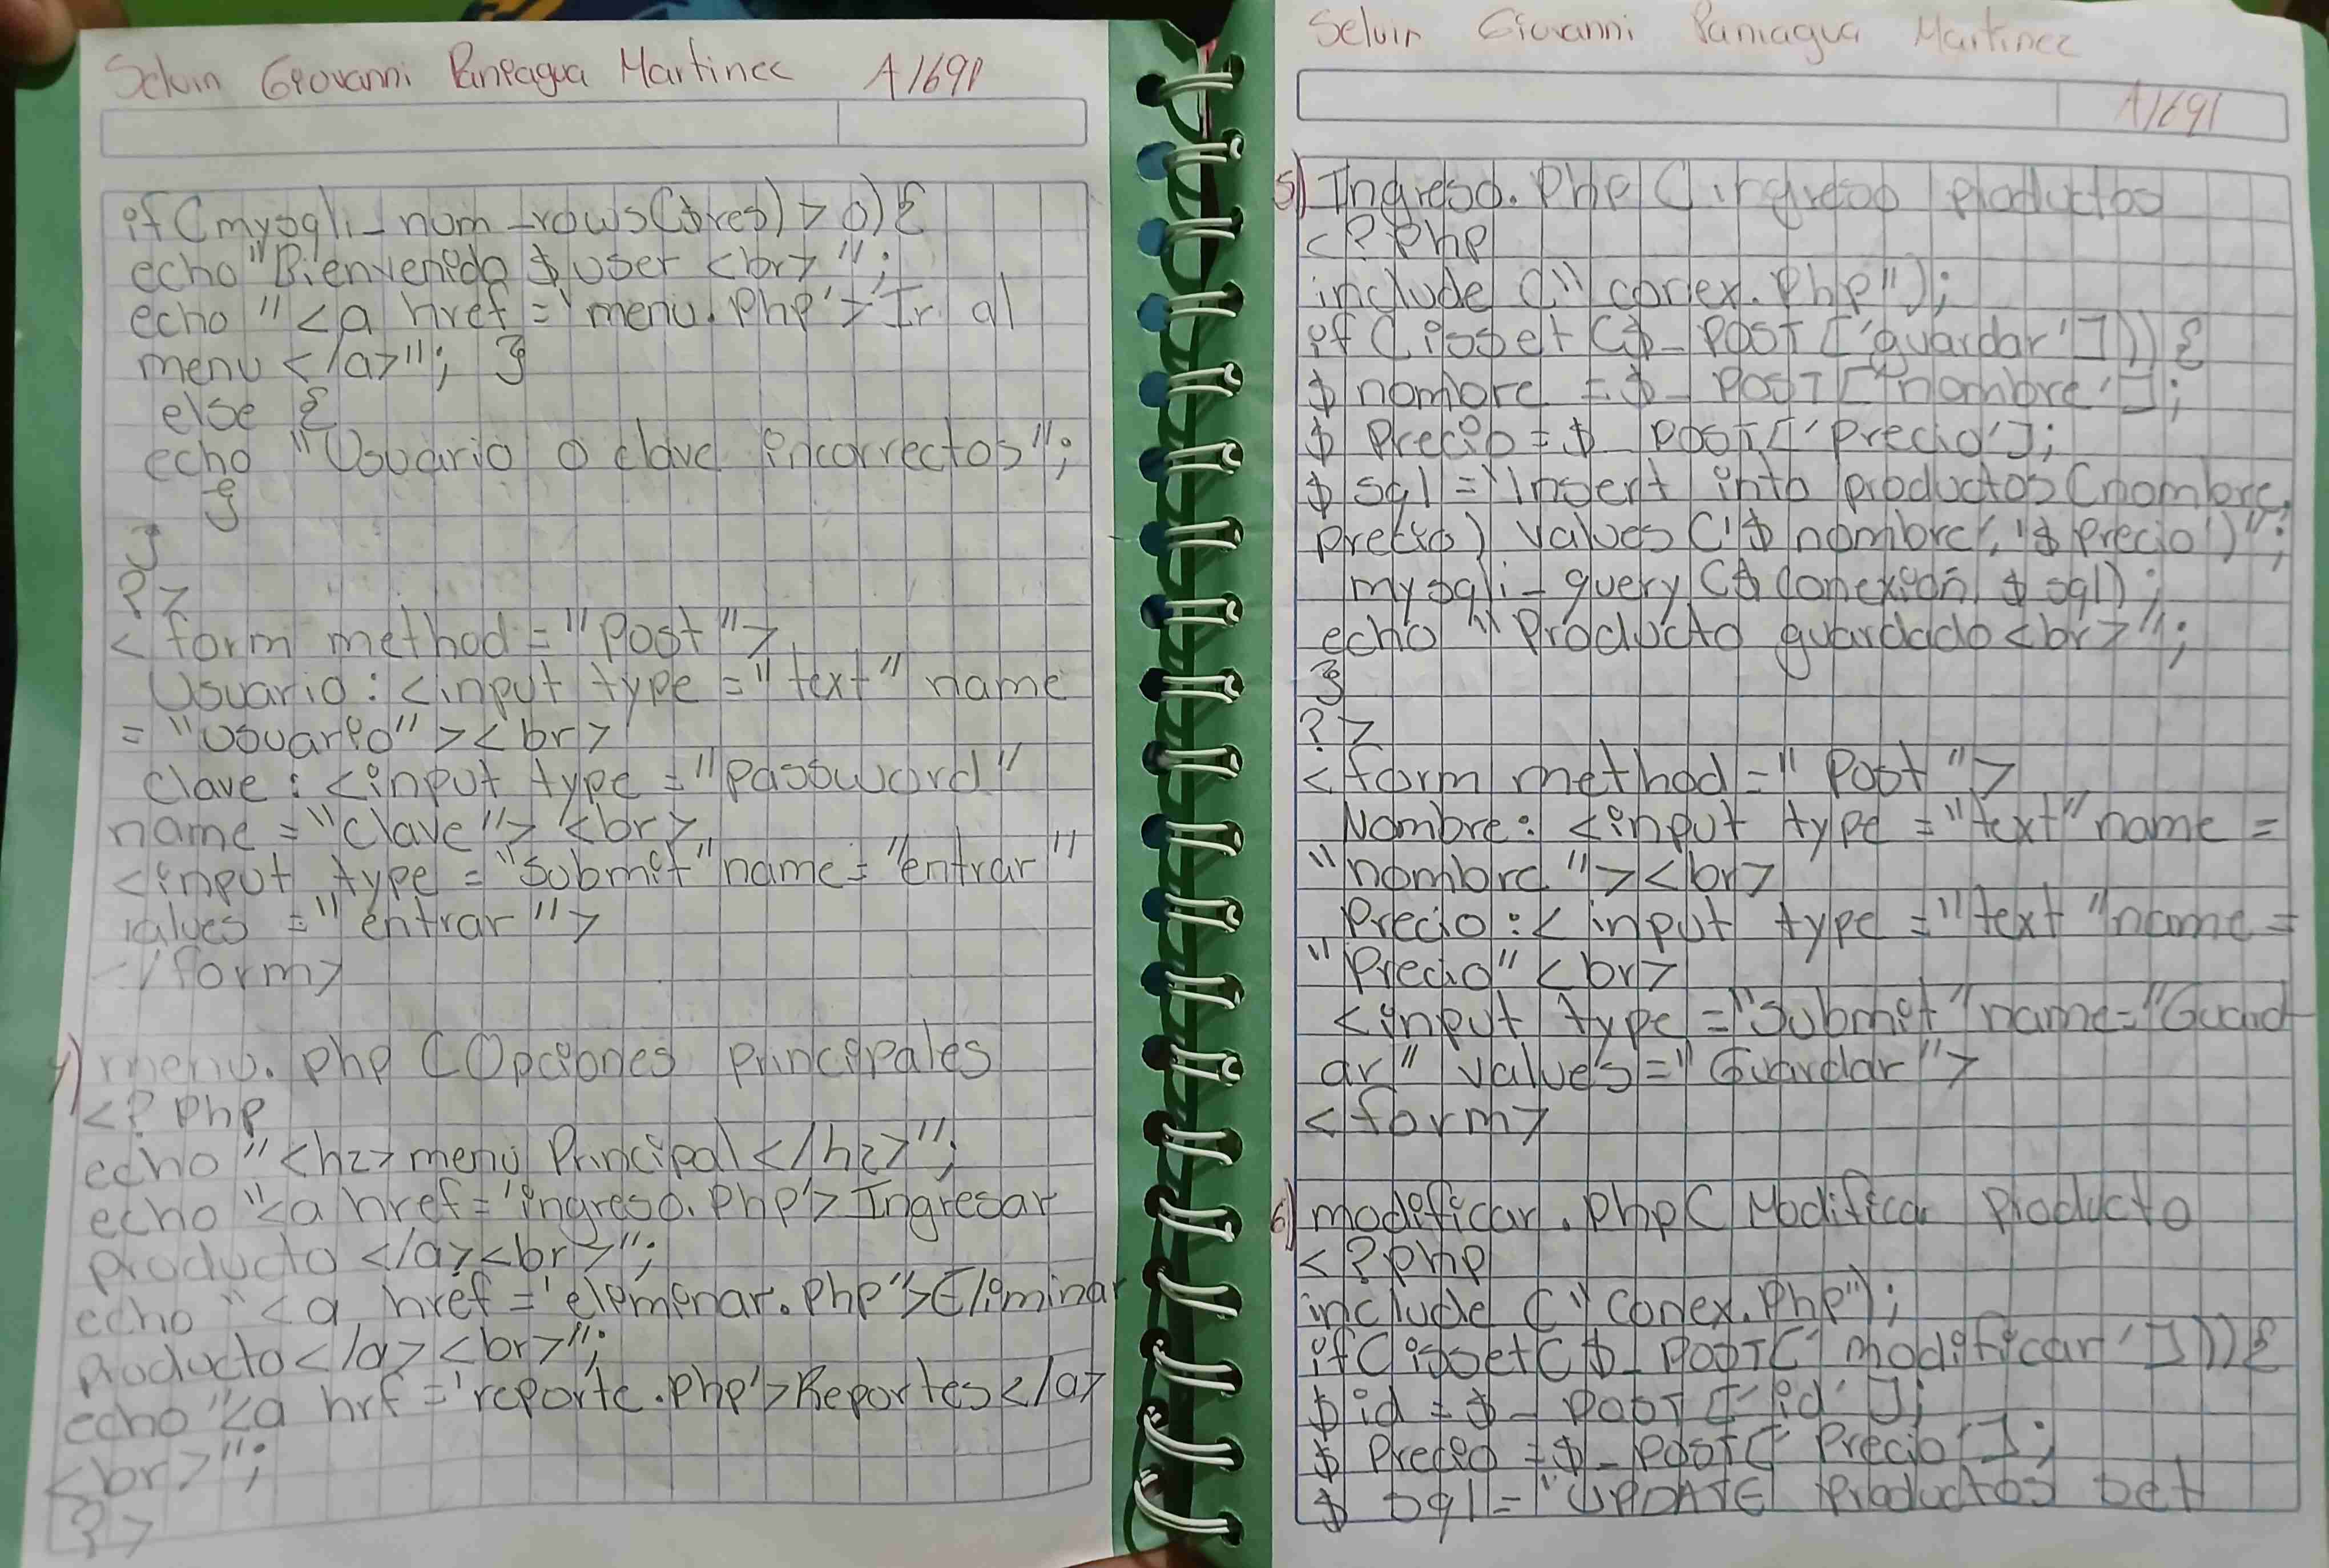 Selvin Geovanni Paniagua Martinez A1691
if(mysqli_num_rows($res) > 0){
echo "Bienvenido $ user <br> ";
echo "<a href = 'menu.php'> Ir al
menu </a>"; }
else {
echo "Usuario o clave incorrectos";
}
}
?>
<form method = "Post">
Usuario : <input type = "text" name
= "usuario"><br>
Clave : <input type = "password"
name = "clave"> <br>
<input type = "submit" name = "entrar"
values = "entrar">
</form>
4) menu.php (Opciones principales
<?php
echo "<h2> menu Principal </h2>";
echo "<a href = 'ingreso.php'> Ingresar
producto </a><br>";
echo "<a href = 'eliminar.php'>Eliminar
Producto</a><br>";
echo "<a hrf = 'reporte.php'>Reportes</a>
<br>";
?>
Selvin Giovanni Paniagua Martinez
A1691
5) Ingreso.php (ingreso productos
<?php
include ("conex.php");
if (isset ($_POST['guardar'])) {
$ nombre = $_POST['nombre'];
$ Precio = $_POST['Precio'];
$ sql = "Insert into productos (nombre,
precio) values ('$ nombre', '$ Precio')";
mysqli_query ($ conexion, $ sql);
echo "Producto guardado<br>";
}
?>
<form method = "Post">
Nombre: <input type = "text" name =
"nombre"><br>
Precio : < input type = "text" name =
"Precio" <br>
<input type = "Submit" name = "Guard
ar" values = "Guardar">
<form>
6) modificar.php ( Modificar Producto
<?php
include ("conex.php");
if( isset( $_POST[' modificar'])){
$ id = $_POST['id'];
$ Precio = $_POST[' Precio'];
$ sql = "UPDATE Productos set